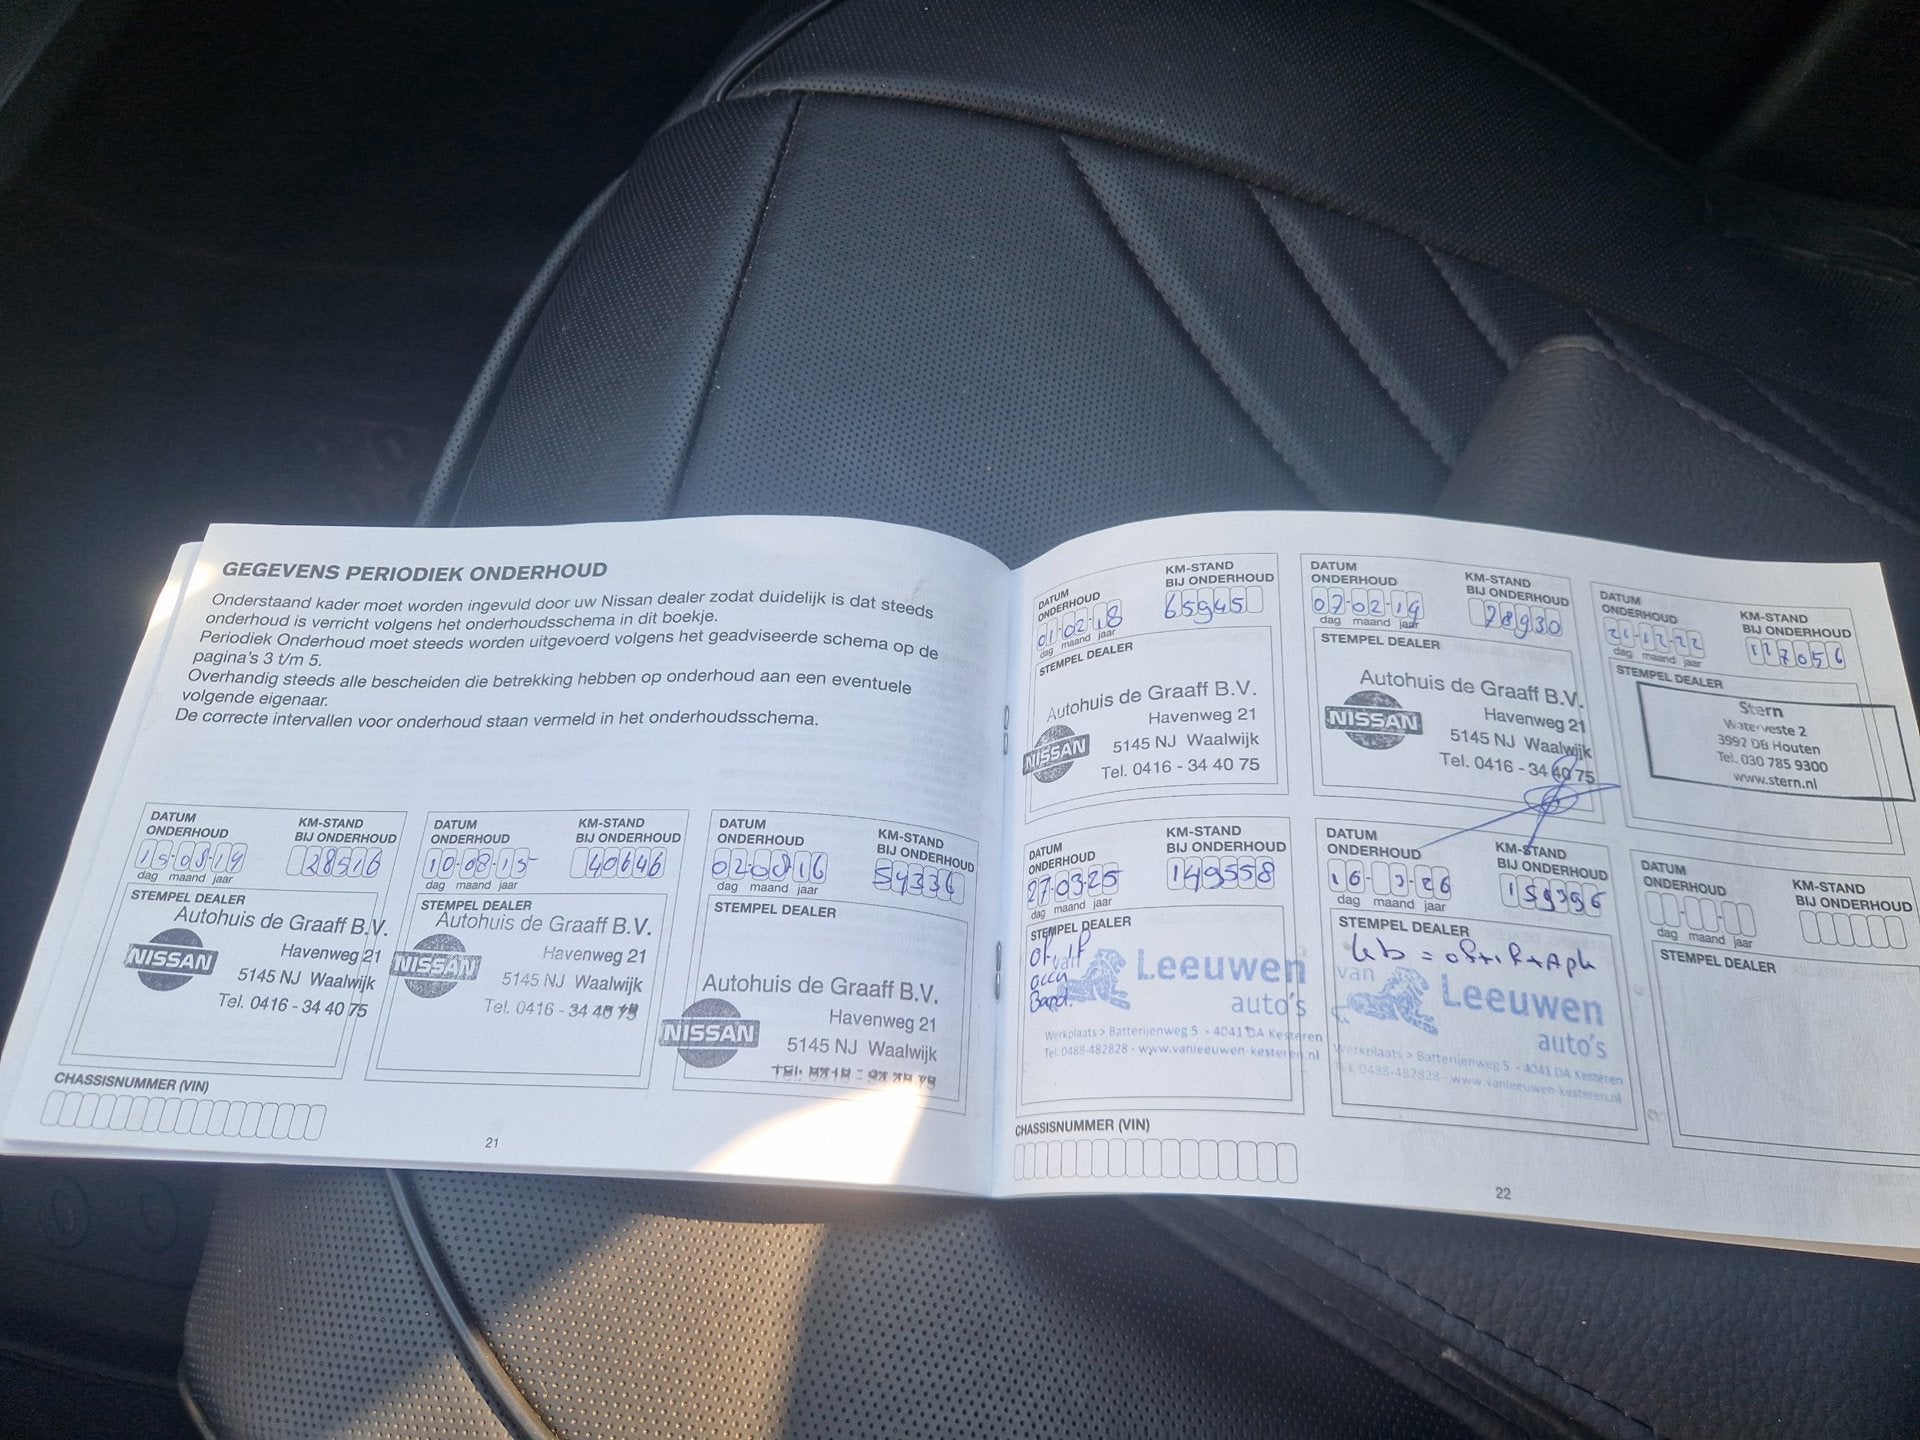 GEGEVENS PERIODIEK ONDERHOUD
Onderstaand kader moet worden ingevuld door uw Nissan dealer zodat duidelijk is dat steeds
onderhoud is verricht volgens het onderhoudsschema in dit boekje.
Periodiek Onderhoud moet steeds worden uitgevoerd volgens het geadviseerde schema op de
pagina's 3 t/m 5.
Overhandig steeds alle bescheiden die betrekking hebben op onderhoud aan een eventuele
volgende eigenaar.
De correcte intervallen voor onderhoud staan vermeld in het onderhoudsschema.
DATUM
ONDERHOUD
KM-STAND
BIJ ONDERHOUD
28516
dag maand jaar
STEMPEL DEALER
Autohuis de Graaff B.V.
NISSAN
Havenweg 21
5145 NJ Waalwijk
Tel. 0416 - 34 40 75
DATUM
ONDERHOUD
KM-STAND
BIJ ONDERHOUD
10-08-15
40646
dag maand jaar
STEMPEL DEALER
Autohuis de Graaff B.V.
NISSAN
Havenweg 21
5145 NJ Waalwijk
Tel. 0416 - 34 40 75
DATUM
ONDERHOUD
KM-STAND
BIJ ONDERHOUD
02-08-16
54336
dag maand jaar
STEMPEL DEALER
Autohuis de Graaff B.V.
NISSAN
Havenweg 21
5145 NJ Waalwijk
CHASSISNUMMER (VIN)
21
DATUM
ONDERHOUD
KM-STAND
BIJ ONDERHOUD
01-02-18
65945
dag maand jaar
STEMPEL DEALER
Autohuis de Graaff B.V.
NISSAN
Havenweg 21
5145 NJ Waalwijk
Tel. 0416 - 34 40 75
DATUM
ONDERHOUD
KM-STAND
BIJ ONDERHOUD
07-02-19
78930
dag maand jaar
STEMPEL DEALER
Autohuis de Graaff B.V.
NISSAN
Havenweg 21
5145 NJ Waalwijk
Tel. 0416 - 34 40 75
DATUM
ONDERHOUD
KM-STAND
BIJ ONDERHOUD
21-12-22
117056
dag maand jaar
STEMPEL DEALER
Stern
Waterveste 2
3992 DB Houten
Tel. 030 785 9300
www.stern.nl
DATUM
ONDERHOUD
KM-STAND
BIJ ONDERHOUD
27-03-25
149558
dag maand jaar
STEMPEL DEALER
van
Leeuwen
auto's
Werkplaats > Batterijenweg 5 - 4041 DA Kesteren
Tel. 0488-482828 - www.vanleeuwen-kesteren.nl
DATUM
ONDERHOUD
KM-STAND
BIJ ONDERHOUD
16-3-26
159396
dag maand jaar
STEMPEL DEALER
van
Leeuwen
auto's
Werkplaats > Batterijenweg 5 - 4041 DA Kesteren
Tel. 0488-482828 - www.vanleeuwen-kesteren.nl
DATUM
ONDERHOUD
KM-STAND
BIJ ONDERHOUD
dag maand jaar
STEMPEL DEALER
CHASSISNUMMER (VIN)
22